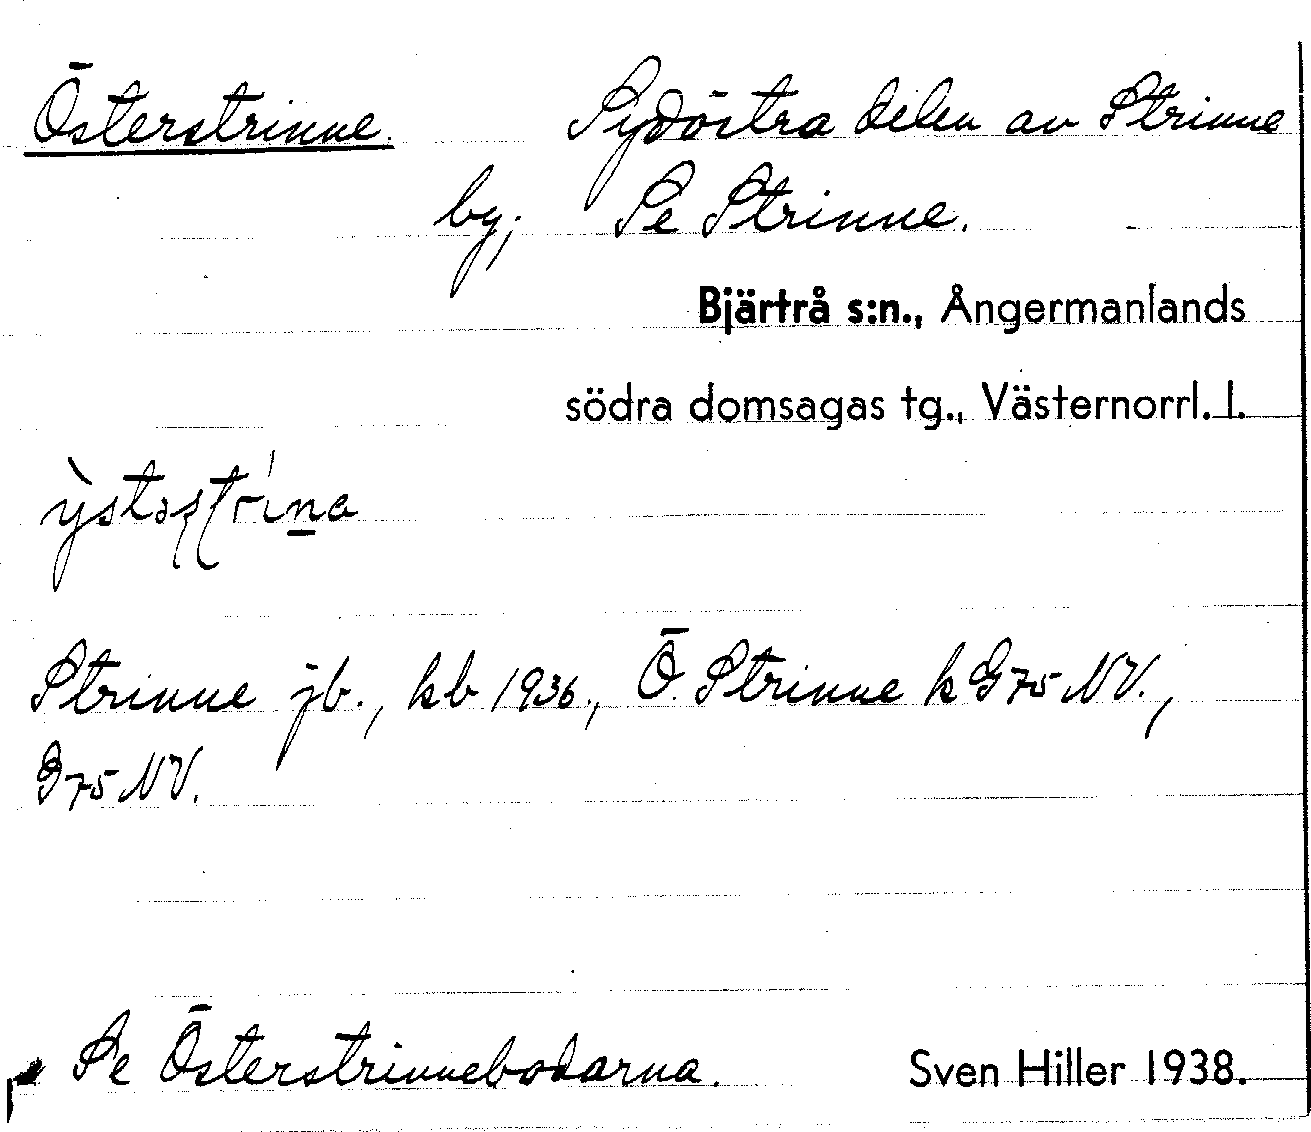 Österstrinne. Sydöstra delen av Strinne
by; Se Strinne.
Bjärtrå s:n., Ångermanlands
södra domsagas tg., Västernorrl. l.
Strinne jb., kb 1936, Ö. Strinne k G75 NV.,
G75 NV.
Se Österstrinnebodarna. Sven Hiller 1938.